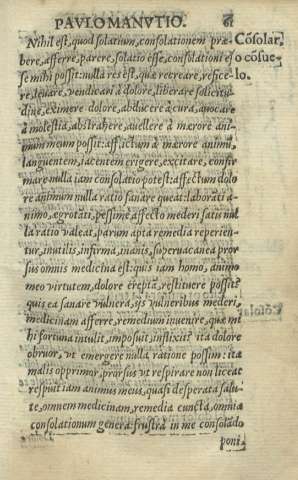 PAVLO MANVTIO. 61
Nihil est, quod solatium, consolationem præ-
bere, afferre, parere, solatio esse, consolationi es
se mihi possit: nulla res est, quæ recreare, reficere,
re, leuare, vendicari à dolore, liberare solicitu
dine, eximere dolore, abducere à cura, auocare
à molestia, abstrahere, auellere à mærore ani-
mum meum possit: afflictum à mærore animũ,
languentem, iacentem erigere, excitare, confir
mare nulla iam consolatio potest: affectum dolo
re animum nulla ratio sanare queat: laboranti a-
nimo, ægrotati, pessime affecto mederi satis nul
la ratio valeat, parum apta remedia reperien-
tur, inutilis, infirma, inanis, superuacanea pror
sus omnis medicina est: quis iam homo, animo
meo virtutem, dolore ereptã, restituere possit?
quis ea sanare vulnera, ijs vulneribus mederi,
medicinam afferre, remedium inuenire, quæ mi
hi fortuna intulit, imposuit, inflixit? ita dolore
obruor, vt emergere nulla ratione possim: ita
malis opprimor, prorsus vt respirare non liceat
respuit iam animus meus, quasi desperata salu-
te, omnem medicinam, remedia cuncta, omnia
consolationum genera: frustra in me consolãdo
poni-
Cõsolar,
o cõsue-
lo.